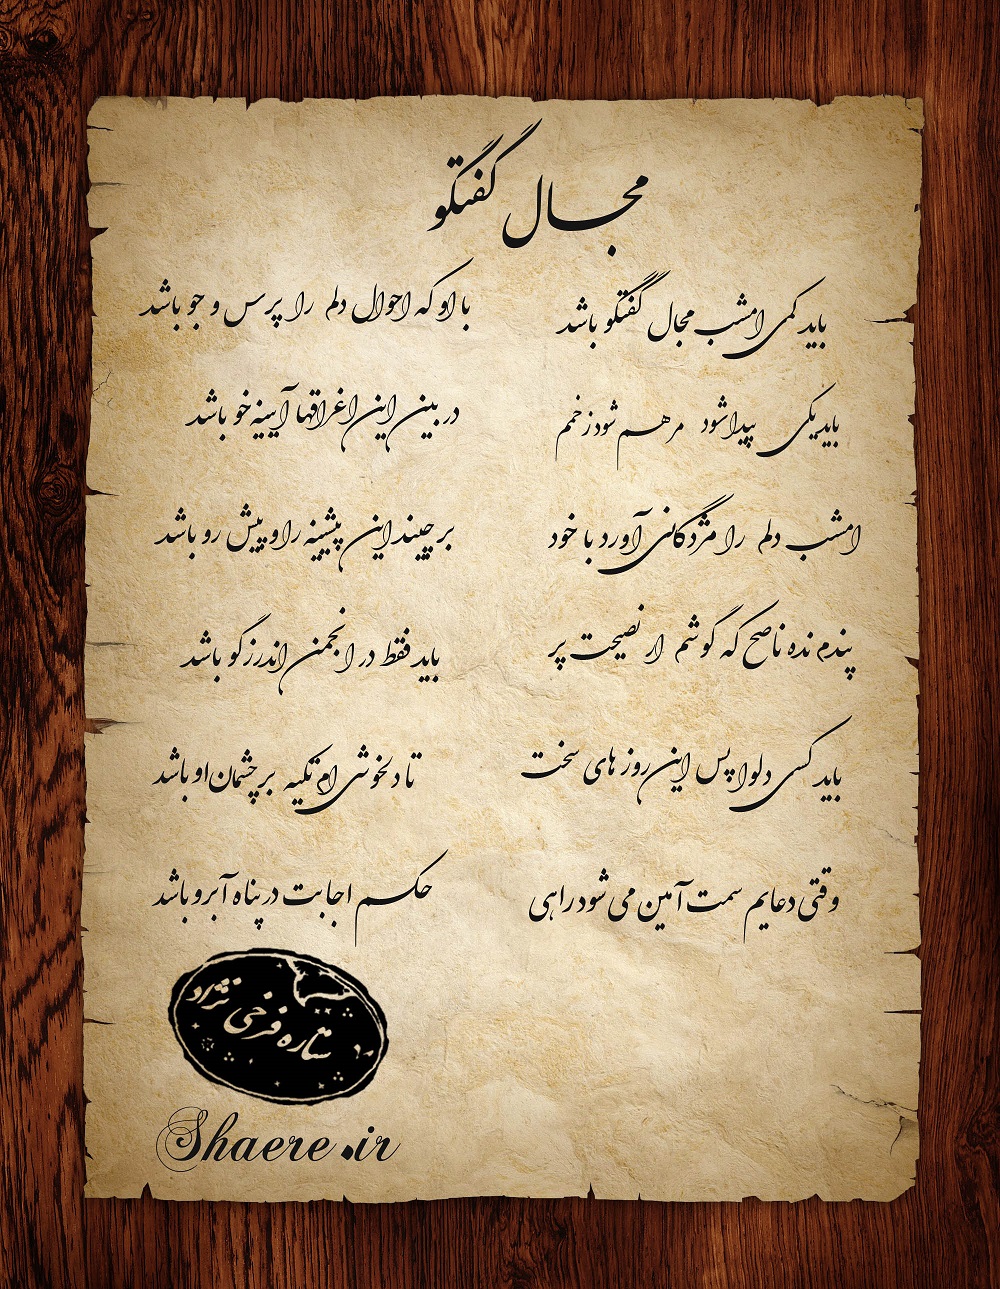 مجال گفتگو
باید کمی امشب مجال گفتگو باشد با او که احوال دلم را پرس و جو باشد
باید یکی پیدا شود مرهم شود زخم در بین این اغراقها آیینه خو باشد
امشب دلم را مژدگانی آورد با خود بر چیند این پیشینه را و پیش رو باشد
پندم نده ناصح که گوشم از نصیحت پر باید فقط در انجمن اندرزگو باشد
باید کسی دلواپس این روز های سخت تا دلخوشی ام تکیه بر چشمان او باشد
وقتی دعایم سمت آمین می شود راهی حکم اجابت در پناه آبرو باشد
ستاره فرخی نژاد
Shaere.ir